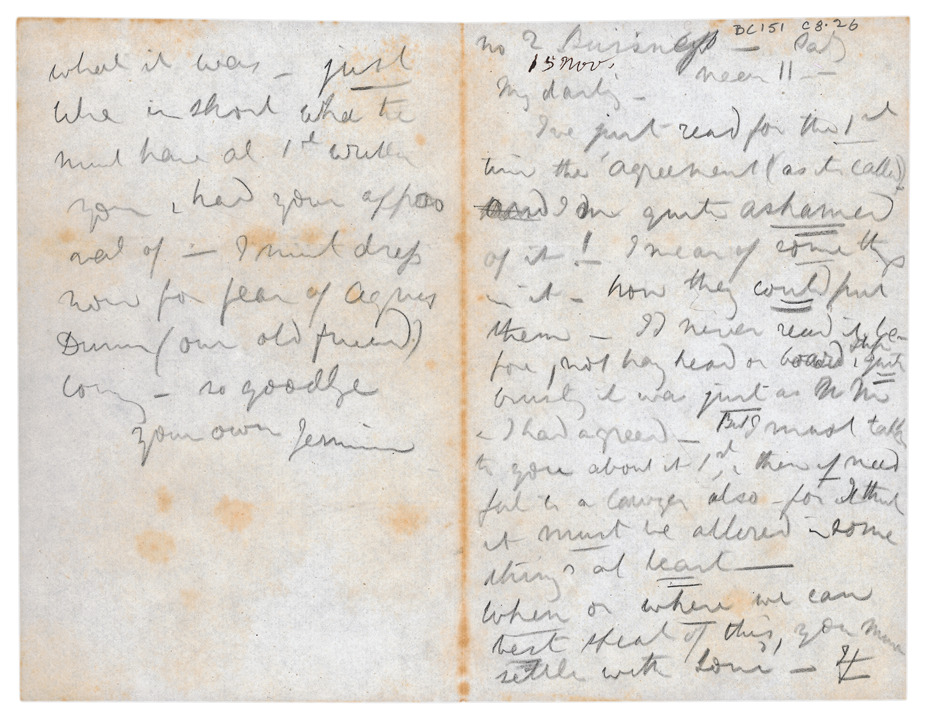 DC151 C8.26
no 2 Business —
15 Nov. near 11 —
My darling —
I've just read for the 1st
time the "agreement" (as it's called)
I'm quite ashamed
of it! — I mean of some things
in it — how they could put
them — I'd never read it be-
fore, not heard or
it was just as
& I had agreed — But I must talk
to you about it 1st, & then if need
ful to a lawyer also — for I think
it must be altered in some
things at least —
When or where we can
best speak of this, you must
settle with —
what it was — just
like in short what he
must have at 1st written
you, & had your appro
val of — I must dress
now for fear of Agnes
Dunn (our old friend)
coming — so goodbye
your own Jemima